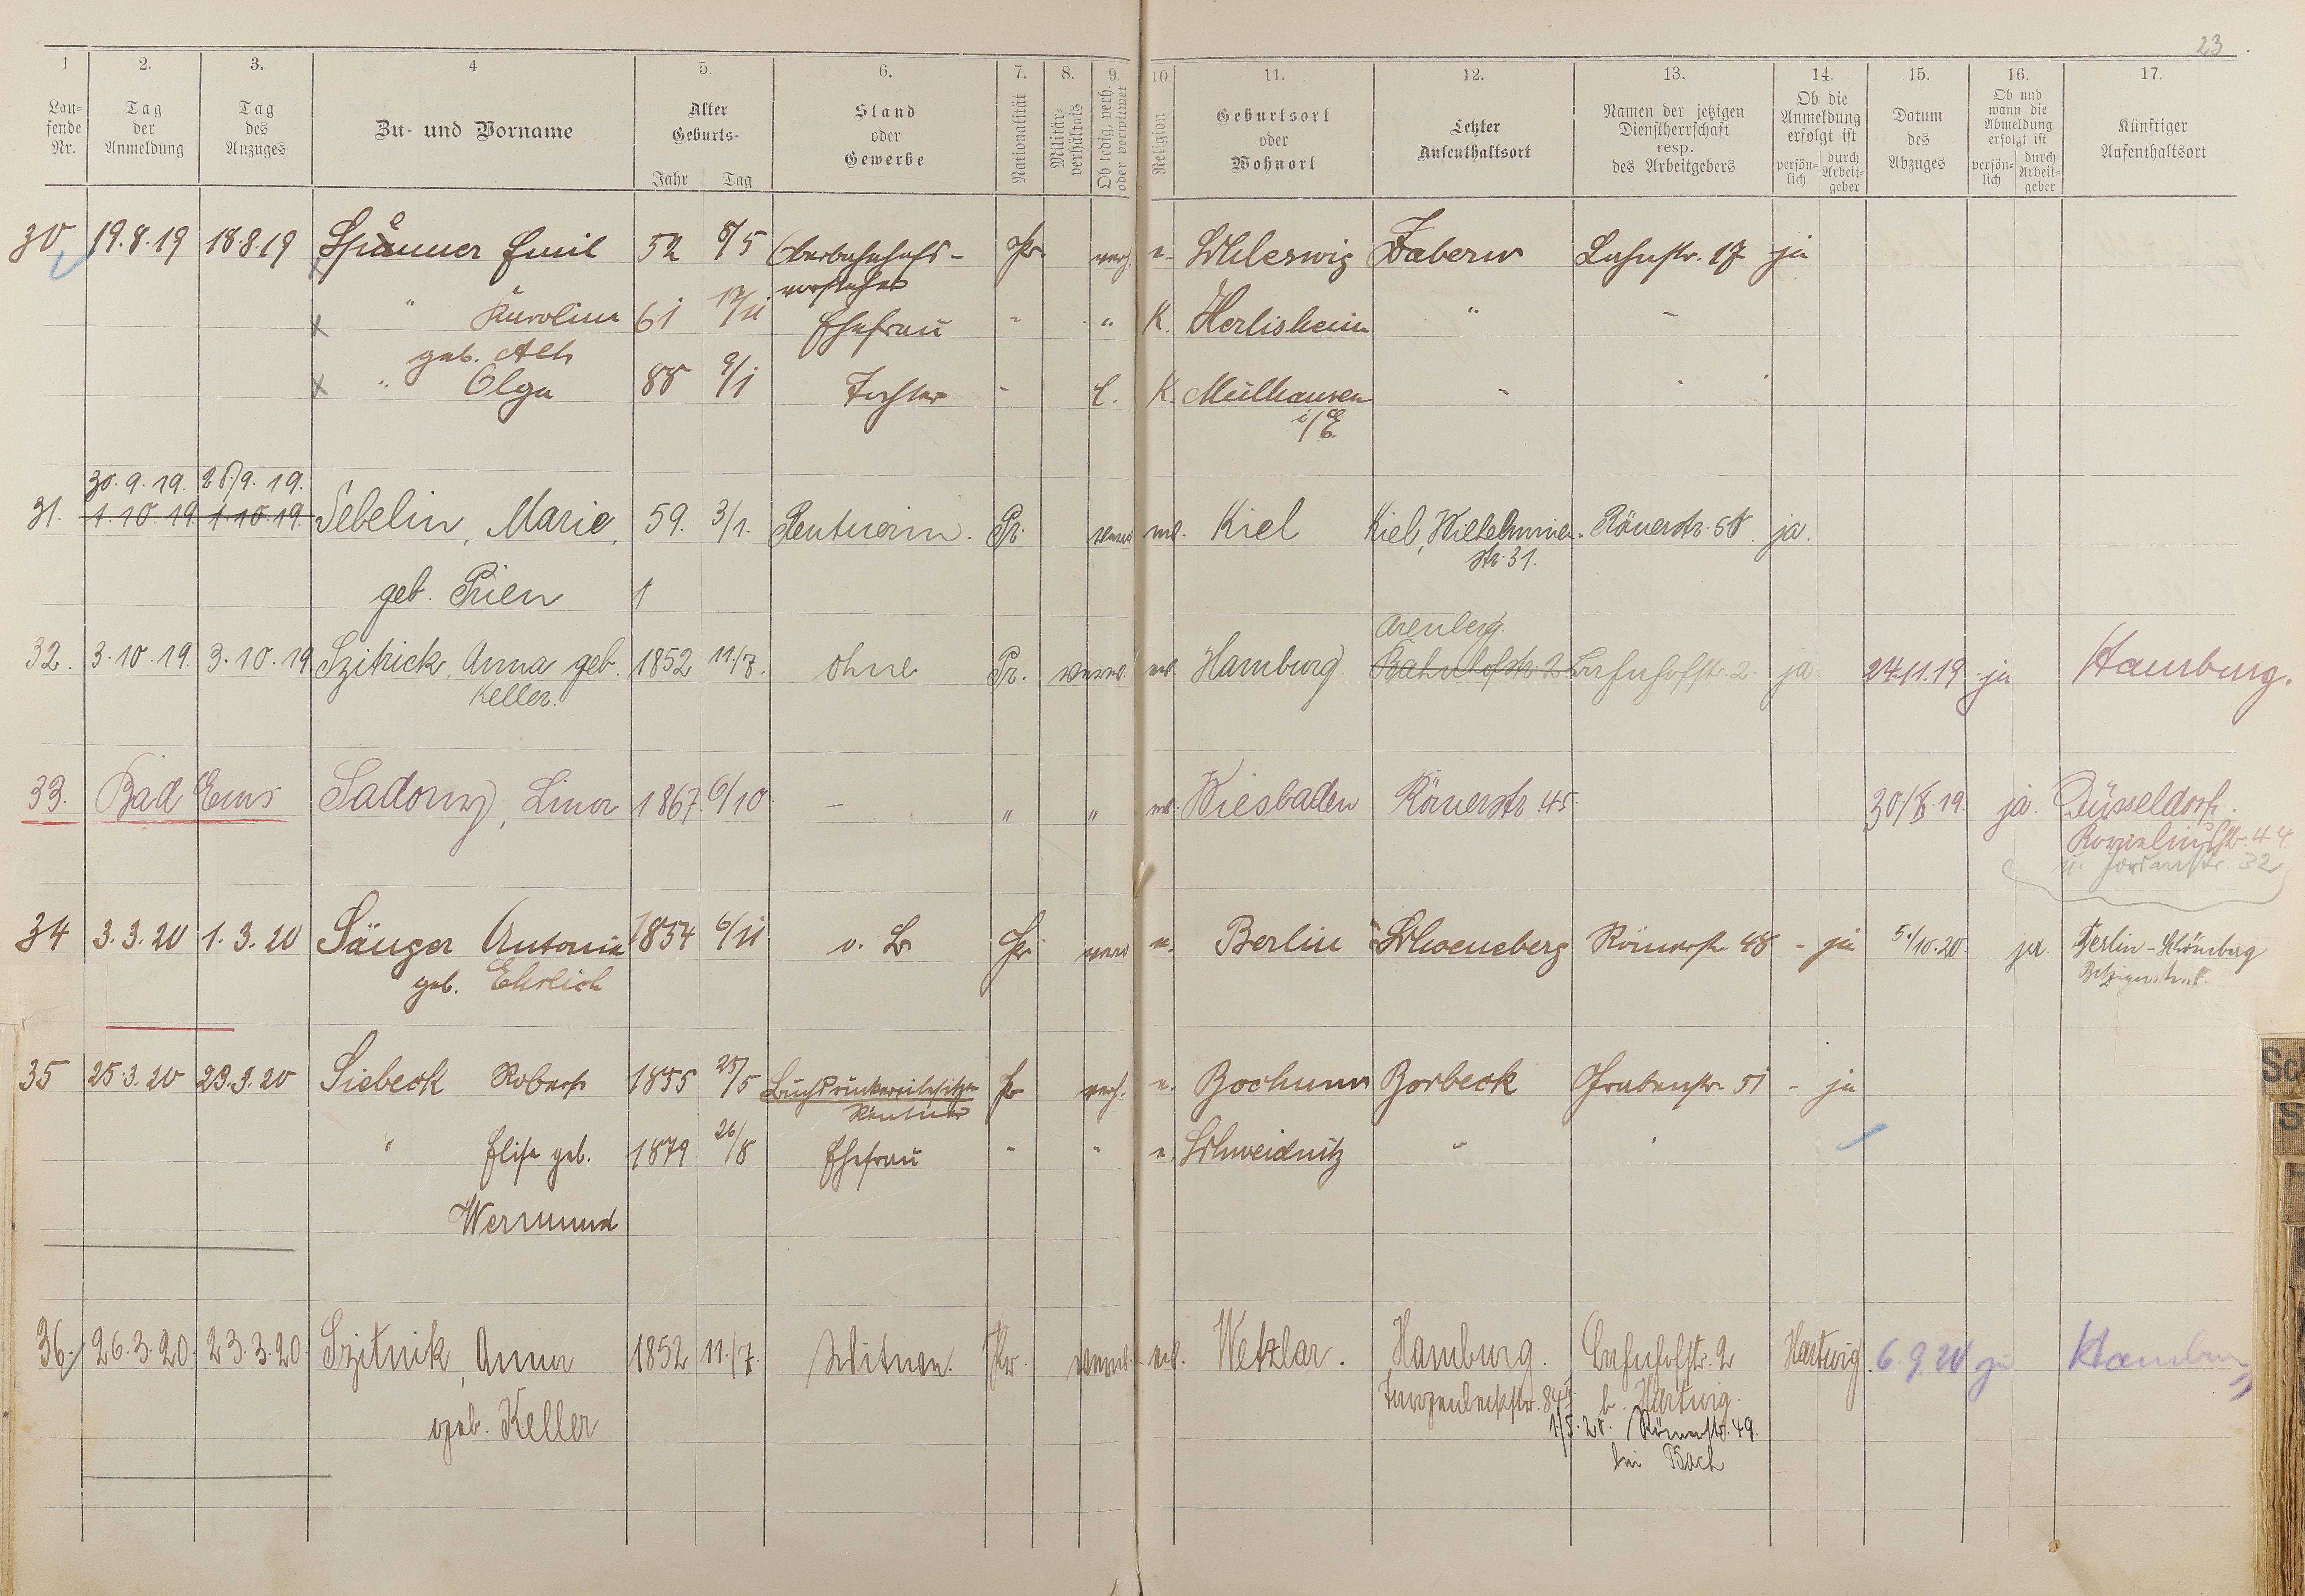 23
1 2. 3. 4 5. 6. 7. 8. 9. 10. 11. 12. 13. 14. 15. 16. 17.
Lau-
fende
Nr.
Tag
der
Anmeldung
Tag
des
Anzuges
Zu- und Vorname
Alter
Geburts-
Jahr Tag
Stand
oder
Gewerbe
Nationalität
Militär-
verhältnis
Ob ledig, verh.
oder verwitwet
Religion
Geburtsort
oder
Wohnort
Letzter
Aufenthaltsort
Namen der jetzigen
Dienstherrschaft
resp.
des Arbeitgebers
Ob die
Anmeldung
erfolgt ist
persön-
lich
durch
Arbeit-
geber
Datum
des
Abzuges
Ob und
wann die
Abmeldung
erfolgt ist
persön-
lich
durch
Arbeit-
geber
Künftiger
Aufenthaltsort
30 19.8.19 18.8.19 Emil 52 8/5 Oberbahnhofs- Pr. verh. e. Schleswig Zabern Lahnstr. 17 ja
vorsteher
" Karolina 61 17/11 Ehefrau " " K. Herlisheim " "
geb. Alh
" Olga 88 9/1 Tochter " l. K. Mülhausen " "
i/E.
30.9.19. 28./9.19.
31. 1.10.19. 1.10.19. Sebelin, Marie, 59. 3/1. Rentnerin. Pr. verw. ev. Kiel Kiel, Wilhelminen- Römerstr. 58. ja.
str. 31.
geb. Prien
Arenberg.
32. 3.10.19. 3.10.19 Szitnick, Anna geb. 1852 11./7. ohne Pr. verw. ev. Hamburg Bahnhofstr. 2 Bahnhofstr. 2. ja. 24.11.19 ja Hamburg.
Keller.
33. Bad Ems Sadony, Lina 1867. 6/10. – " " ev. Wiesbaden Römerstr. 45. 30/X.19. ja. Düsseldorf.
Korneliusstr. 44
u. Jordanstr. 32
34 3.3.20 1.3.20 Sänger Antonie 1854 6/11 o. B. Pr verw e. Berlin Schoeneberg Römerstr. 48 - ja 5./10.20. ja Berlin-Schöneberg
geb. Ehrlich
35 25.3.20 23.3.20 Siebeck Robert 1855 25/5 Buchdruckereibesitzer Pr verh. e. Bochum Borbeck Grabenstr. 51 - ja
Rentner
" Elise geb. 1879 26/8 Ehefrau " " e. Schweidnitz " "
Wermund
36. 26.3.20. 23.3.20. Szitnik, Anna 1852 11./7. Witwe. Pr. verw. ev. Wetzlar. Hamburg. Bahnhofstr. 2 Hartwig. 6.9.20 ja Hamburg
84 b. Hartwig.
geb. Keller 1/5.20. Römerstr. 49.
bei Bach